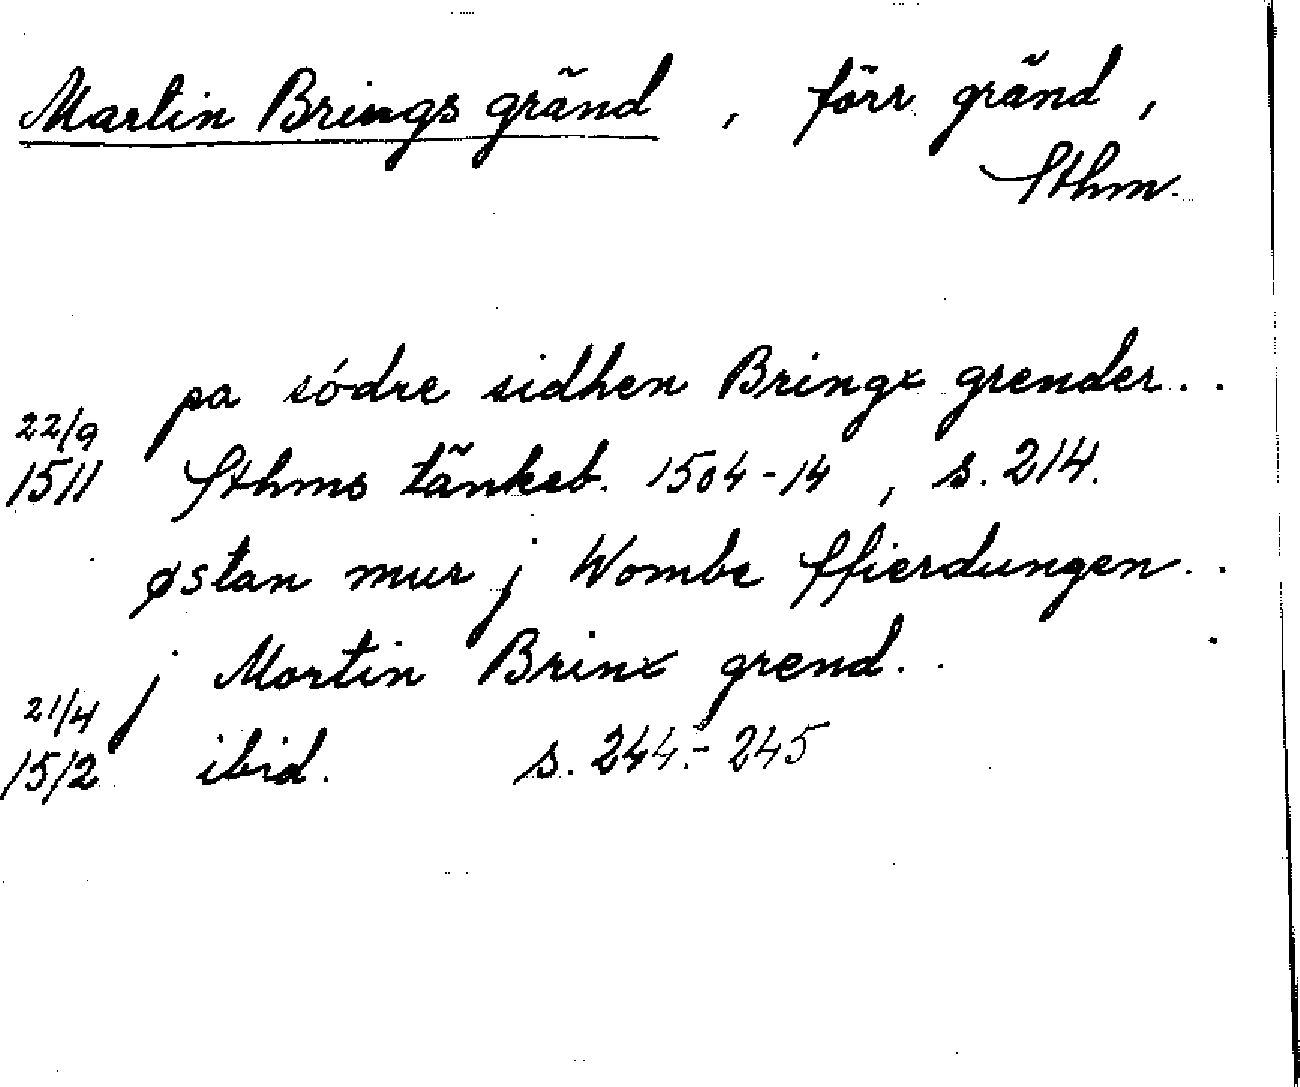 Martin Brings gränd, förr gränd,
Sthm.
pa södre sidhen Bringx grender..
22/9
1511 Sthms tänkeb. 1504-14, s. 214.
østan mur j Wombe ffierdungen..
j Mortin Brinx grend..
21/4
1512 ibid. s. 244-245